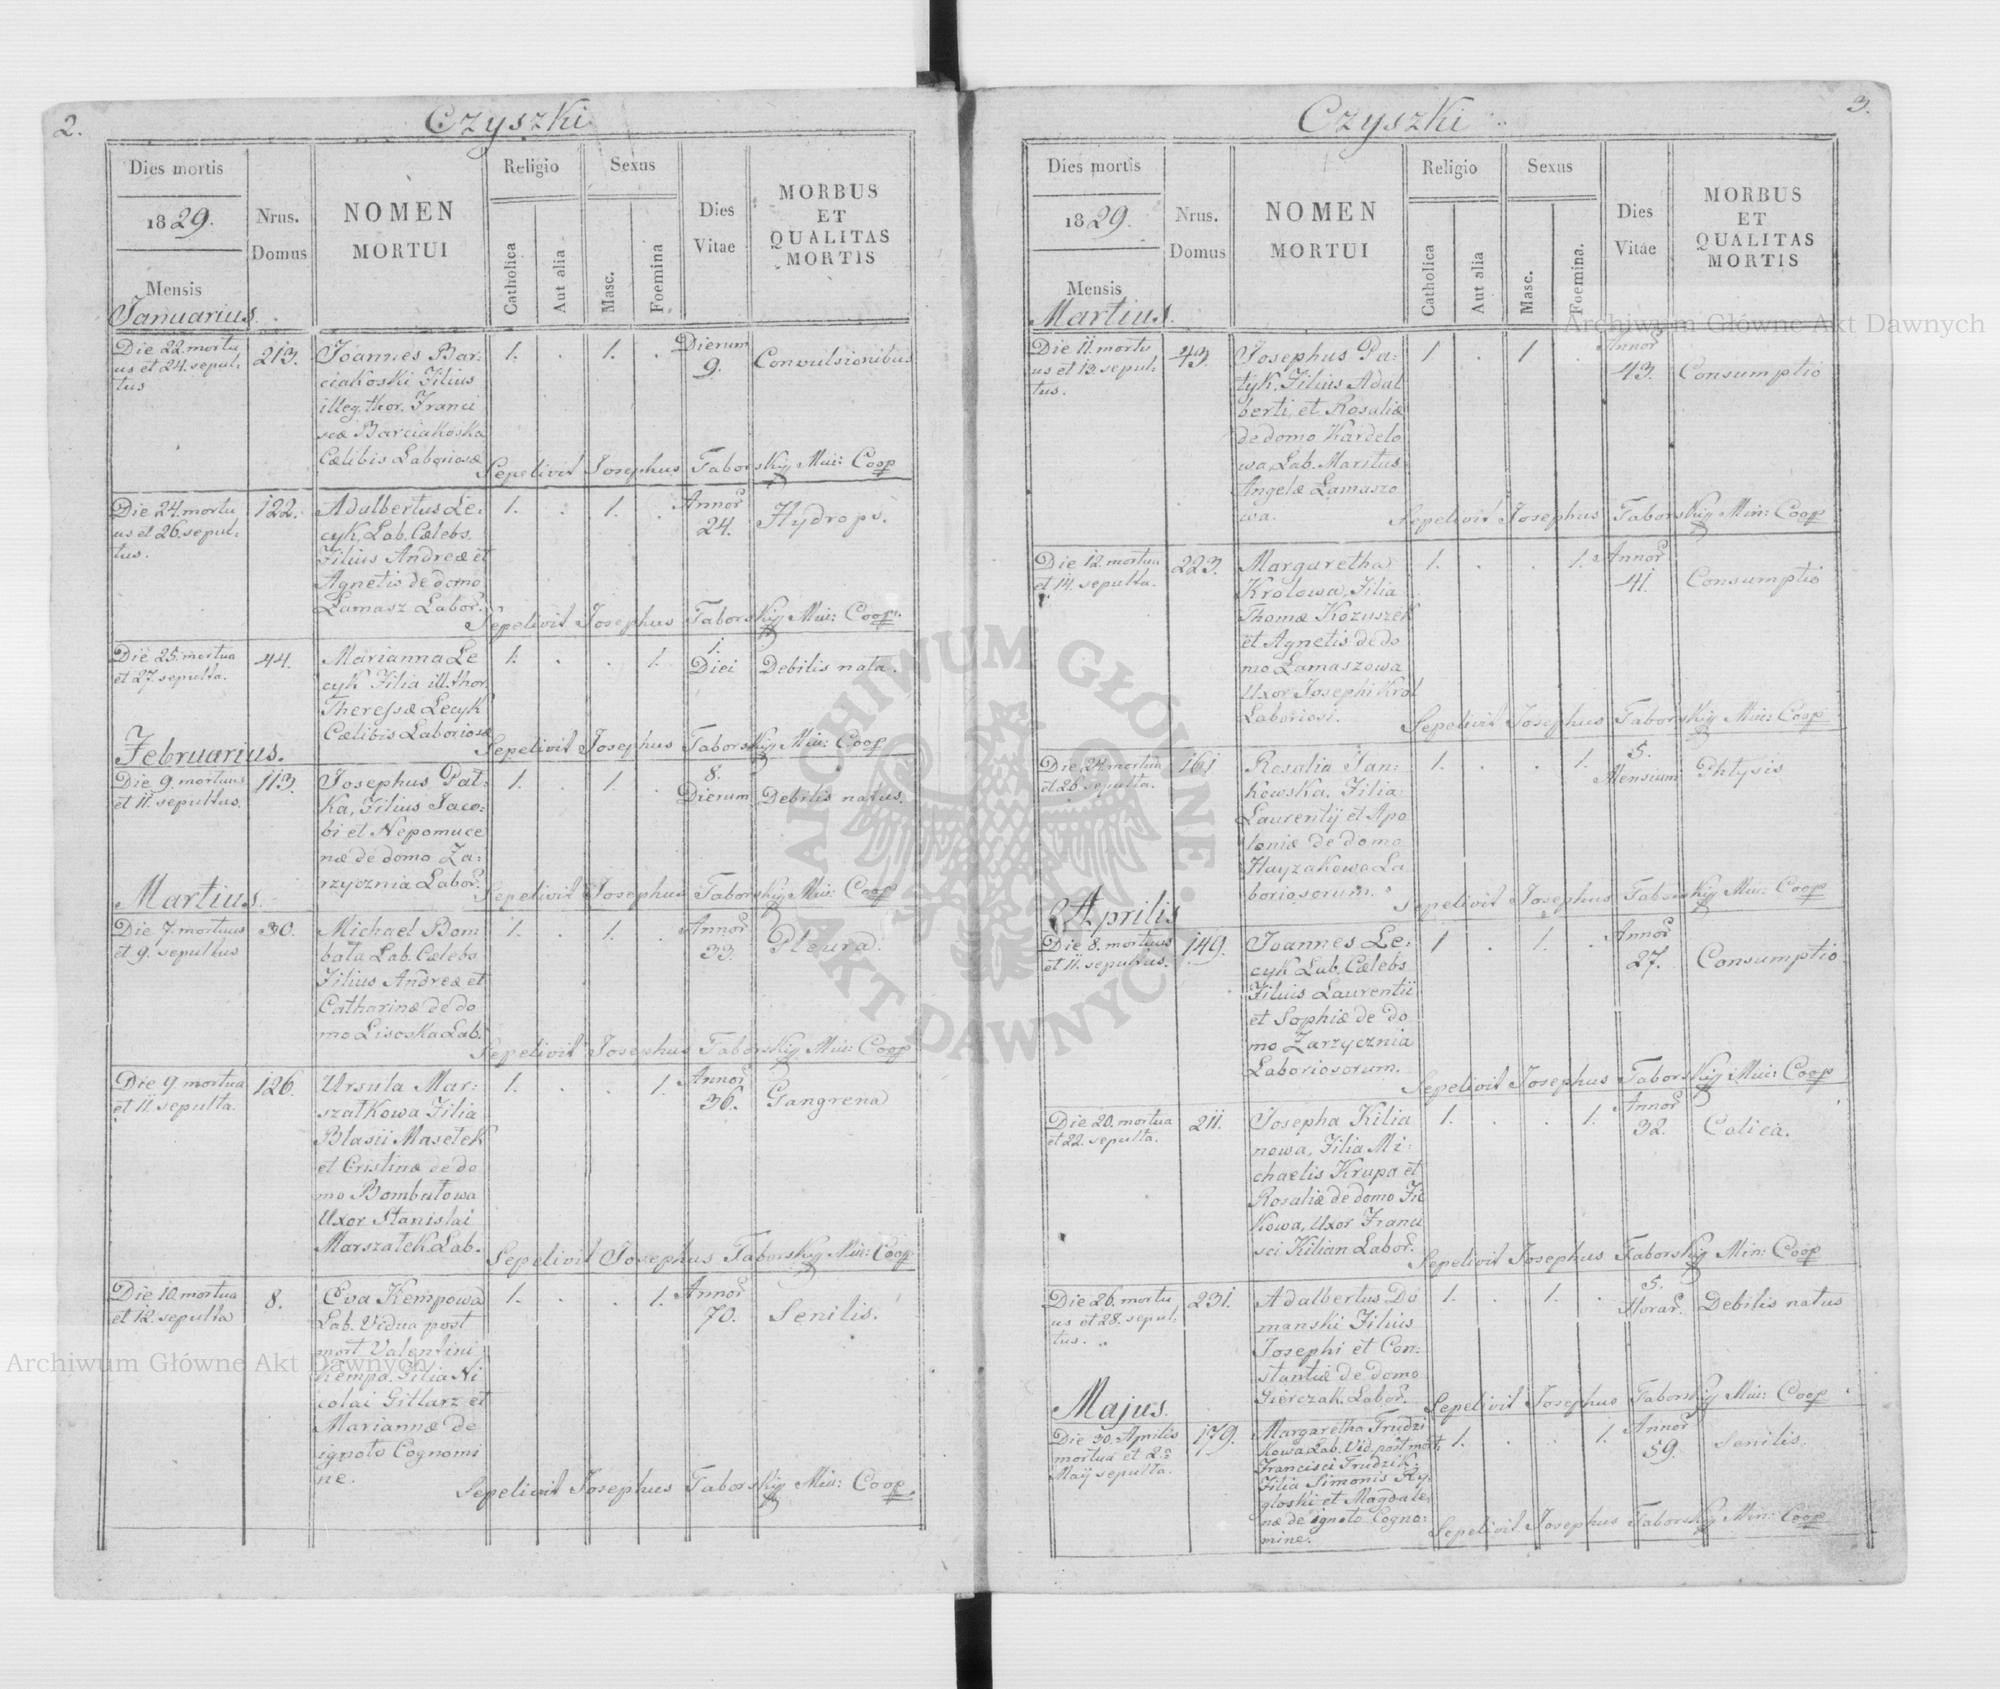 2.
Czyszki
Dies mortis
1829.
Mensis
Nrus.
Domus
NOMEN
MORTUI
Religio
Catholica
Aut alia
Sexus
Masc.
Foemina
Dies
Vitae
MORBUS
ET
QUALITAS
MORTIS
Januarius.
Die 22. mortu
us et 24. sepul-
tus
213.
Joannes Bar:
ciakoski Filius
illeg. thor. Franci
scæ Barciakoska
Cælibis Laboriosæ
1. . 1. .
Dierum
9.
Convulsionibus
Sepelivit Josephus Taborskij Min: Coop
Die 24. mortu
us et 26. sepul:
tus.
122.
Adalbertus Le:
cyk, Lab. Cælebs.
Filius Andreæ et
Agnetis de domo
Łamasz Labor.
1. . 1. .
Annor
24.
Hydrops.
Sepelivit Josephus Taborskij Min: Coop.
Die 25. mortua
et 27. sepulta.
44.
Marianna Le
cyk Filia ill. thor.
Theressæ Lecyk
Cælibis Laboriosæ
1. . . 1.
1.
Diei
Debilis nata.
Sepelivit Josephus Taborskij Min: Coop
Februarius.
Die 9. mortuus
et 11. sepultus.
113.
Josephus Pat:
ka, Filius Jaco:
bi et Nepomuce
næ de domo Za:
rzycznia Labor.
1. . 1. .
8.
Dierum
Debilis natus.
Sepelivit Josephus Taborskij Min: Coop
Martius.
Die 7. mortuus
et 9. sepultus
30.
Michael Bom
bała Lab. Cælebs
Filius Andreæ et
Catharinæ de do
mo Lisoska Lab.
1. . 1. .
Annor
33.
Pleura.
Sepelivit Josephus Taborskij Min: Coop
Die 9. mortua
et 11. sepulta.
126.
Ursula Mar:
szałkowa Filia
Blasii Masełek
et Cristinæ de do
mo Bombałowa
Uxor Stanislai
Marszałek Lab.
1. . . 1.
Annor
36.
Gangrena
Sepelivit Josephus Taborskij Min: Coop
Die 10. mortua
et 12. sepulta
8.
Eva Kempowa
Lab. Vidua post
mort. Valentini
Kempa. Filia Ni
colai Gittarz et
Mariannæ de
ignoto Cognomi
ne.
1. . . 1.
Annor
70.
Senilis.
Sepelivit Josephus Taborskij Min: Coop.
3.
Czyszki
Dies mortis
1829.
Mensis
Nrus.
Domus
NOMEN
MORTUI
Religio
Catholica
Aut alia
Sexus
Masc.
Foemina.
Dies
Vitae
MORBUS
ET
QUALITAS
MORTIS
Martius.
Die 11. mortu
us et 13. sepul:
tus.
43.
Josephus Pa:
tyk. Filius Adal
berti, et Rosaliæ
de domo Kardelo
wa, Lab. Maritus
Angelæ Łamaszo
wa.
1 . 1 .
Annor
43.
Consumptio
Sepelivit Josephus Taborskij Min: Coop
Die 12. mortua
et 14. sepulta.
223.
Margaretha
Krolowa, Filia
Thomæ Kozuszek
et Agnetis de do
mo Łamaszowa
Uxor Josephi Krol
Laboriosi.
1. . . 1.
Annor
41.
Consumptio
Sepelivit Josephus Taborskij Min: Coop
Die 24. mortua
et 26. sepulta.
161
Rosalia Jan:
kowska, Filia
Laurentij et Apo
loniæ de domo
Hayzakowa La
boriosorum.
1. . . 1.
5.
Mensium
Phtysis
Sepelivit Josephus Taborskij Min: Coop
Aprilis
Die 8. mortuus
et 11. sepultus.
149.
Joannes Le:
cyk Lab. Cælebs
Filius Laurentii
et Sophiæ de do
mo Zarzycznia
Laboriosorum.
1 . 1. .
Annor
27.
Consumptio
Sepelivit Josephus Taborskij Min: Coop
Die 20. mortua
et 22. sepulta.
211.
Josepha Kilia
nowa, Filia Mi:
chaelis Krupa et
Rosaliæ de domo Fic
kowa, Uxor Franci
sci Kilian Labor.
1. . . 1.
Annor
32.
Colica.
Sepelivit Josephus Taborskij Min: Coop
Die 26. mortu
us et 28. sepul.
tus.
231.
Adalbertus Do
manski Filius
Josephi et Con:
stantiæ de domo
Gierczak. Labor.
1. . 1. .
5.
Horar.
Debilis natus
Sepelivit Josephus Taborskij Min: Coop
Majus.
Die 30. Aprilis
mortua et 2a
Maij sepulta.
179.
Margaretha Trudzi
kowa Lab. Vid. post mort.
Francisci Trudzik.
Filia Simonis Ry:
gloski et Magdale:
næ de ignoto Cogno:
mine.
1. . . 1.
Annor
59.
Senilis.
Sepelivit Josephus Taborskij Min: Coop
Archiwum Główne Akt Dawnych
Archiwum Główne Akt Dawnych
ARCHIWUM GŁÓWNE · AKT DAWNYCH